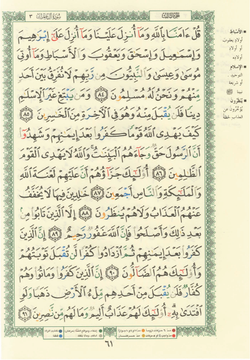 قُلْ ءَامَنَّا بِٱللَّهِ وَمَآ أُنزِلَ عَلَيْنَا وَمَآ أُنزِلَ عَلَىٰٓ إِبْرَٰهِيمَ
وَإِسْمَٰعِيلَ وَإِسْحَٰقَ وَيَعْقُوبَ وَٱلْأَسْبَاطِ وَمَآ أُوتِىَ
مُوسَىٰ وَعِيسَىٰ وَٱلنَّبِيُّونَ مِن رَّبِّهِمْ لَا نُفَرِّقُ بَيْنَ أَحَدٍ
مِّنْهُمْ وَنَحْنُ لَهُۥ مُسْلِمُونَ ٨٤ وَمَن يَبْتَغِ غَيْرَ ٱلْإِسْلَٰمِ
دِينًا فَلَن يُقْبَلَ مِنْهُ وَهُوَ فِى ٱلْءَاخِرَةِ مِنَ ٱلْخَٰسِرِينَ ٨٥
كَيْفَ يَهْدِى ٱللَّهُ قَوْمًا كَفَرُوا۟ بَعْدَ إِيمَٰنِهِمْ وَشَهِدُوٓا۟
أَنَّ ٱلرَّسُولَ حَقٌّ وَجَآءَهُمُ ٱلْبَيِّنَٰتُ وَٱللَّهُ لَا يَهْدِى ٱلْقَوْمَ
ٱلظَّٰلِمِينَ ٨٦ أُو۟لَٰٓئِكَ جَزَآؤُهُمْ أَنَّ عَلَيْهِمْ لَعْنَةَ ٱللَّهِ
وَٱلْمَلَٰٓئِكَةِ وَٱلنَّاسِ أَجْمَعِينَ ٨٧ خَٰلِدِينَ فِيهَا لَا يُخَفَّفُ
عَنْهُمُ ٱلْعَذَابُ وَلَا هُمْ يُنظَرُونَ ٨٨ إِلَّا ٱلَّذِينَ تَابُوا۟ مِنۢ
بَعْدِ ذَٰلِكَ وَأَصْلَحُوا۟ فَإِنَّ ٱللَّهَ غَفُورٌ رَّحِيمٌ ٨٩ إِنَّ ٱلَّذِينَ
كَفَرُوا۟ بَعْدَ إِيمَٰنِهِمْ ثُمَّ ٱزْدَادُوا۟ كُفْرًا لَّن تُقْبَلَ تَوْبَتُهُمْ
وَأُو۟لَٰٓئِكَ هُمُ ٱلضَّآلُّونَ ٩٠ إِنَّ ٱلَّذِينَ كَفَرُوا۟ وَمَاتُوا۟ وَهُمْ
كُفَّارٌ فَلَن يُقْبَلَ مِنْ أَحَدِهِم مِّلْءُ ٱلْأَرْضِ ذَهَبًا وَلَوِ
ٱفْتَدَىٰ بِهِۦٓ أُو۟لَٰٓئِكَ لَهُمْ عَذَابٌ أَلِيمٌ وَمَا لَهُم مِّن نَّٰصِرِينَ ٩١
٦١